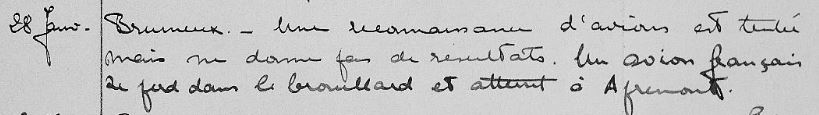 28 Janv. - Brumeux. - Une reconnaissance d'avions est tentée
mais ne donne pas de résultats. Un avion français
se perd dans le brouillard et atterrit à Apremont.